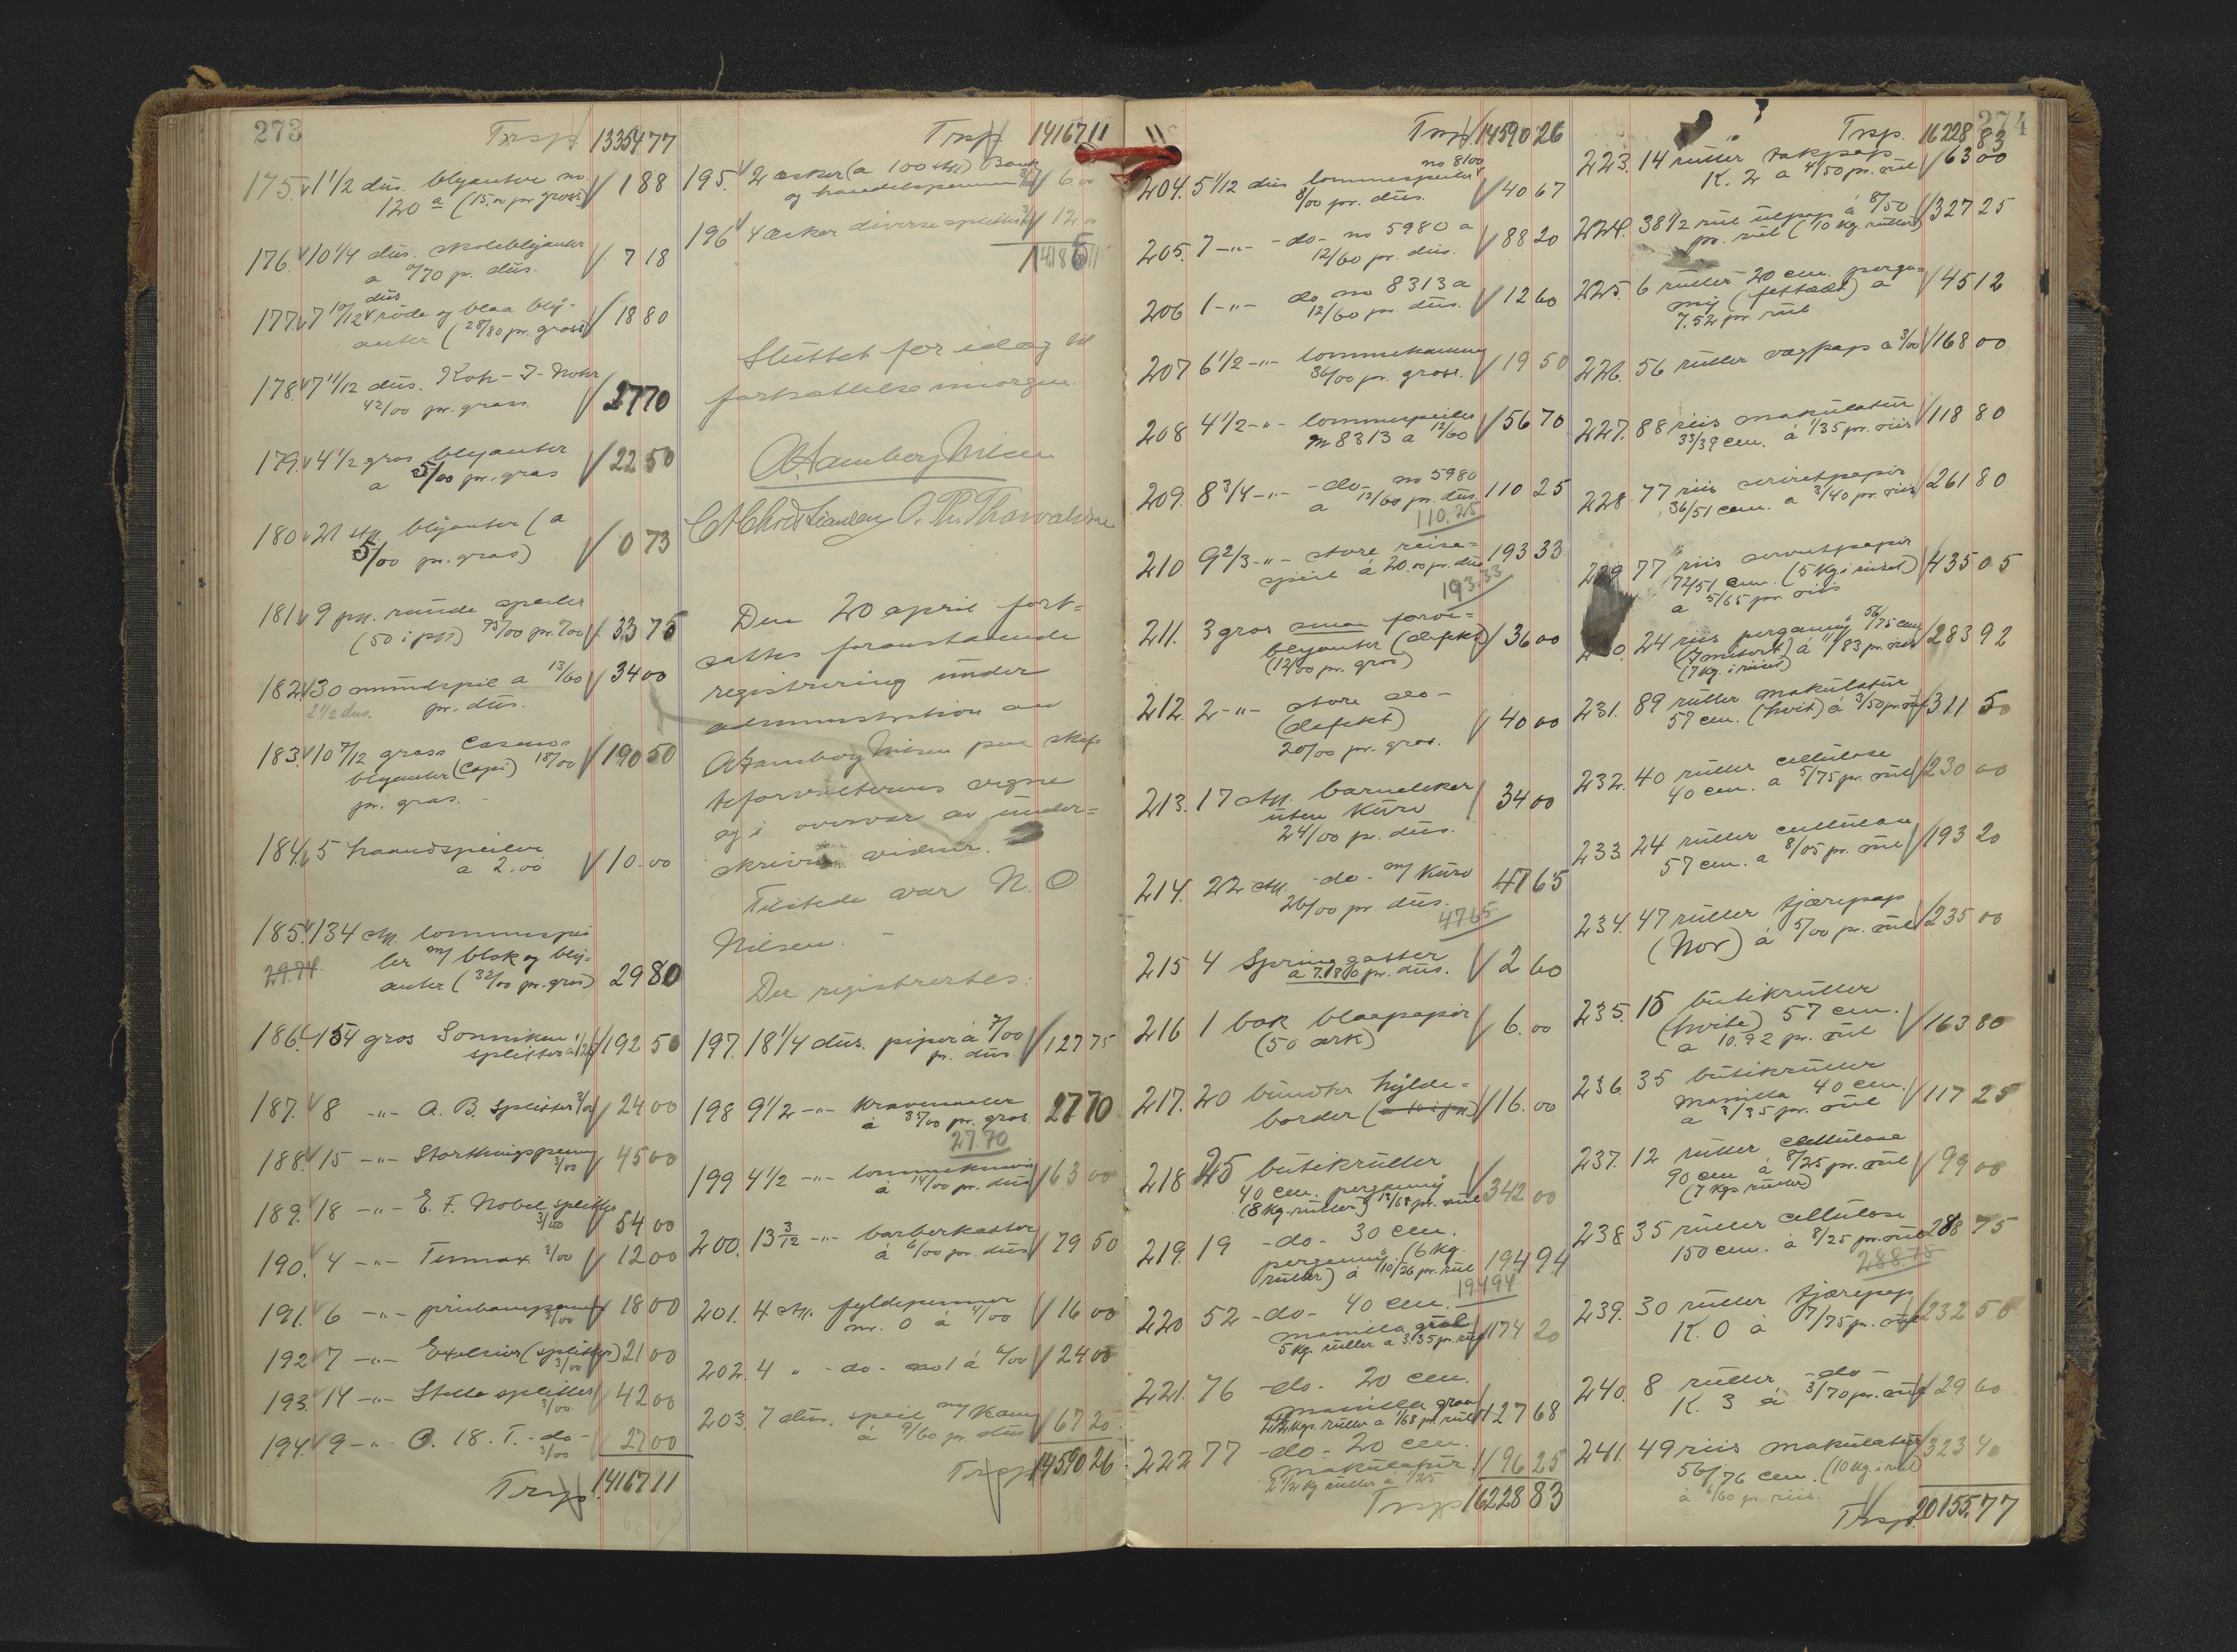 273
Trsp 1335477
175. 1 1/2 dus. blyanter no.
120 a (15.00 pr gross) 1 88
176. 10 1/4 dus. skoleblyanter
a 0/70 p. dus. 7 18
dus
177. 7 10/12 røde og blaa bly-
anter (28/80 pr. gross) 18 80
178. 7 11/12 dus. Koh-I-Nohr
42/00 pr. gross. 27 70
179. 4 1/2 gros blyanter
a 5/00 pr. gros 22 50
180. 21 stk. blyanter (a
5/00 pr. gros) 0 73
181. 9 pk. runde speiler
(50 i pk) 75/00 pr. %00 33 75
182. 30 mundspil a 13/60
2 1/2 dus. pr. dus. 34 00
183. 10 7/12 gross Casino-
blyanter (Copi) 18/00 190 50
pr. gros.
184. 5 haandspeiler
a 2.00 10.00
185. 134 stk. lommespei
29.78 ler m/ blok og bly-
anter (32/00 pr. gros) 29 80
186. 154 gros Sønniken
splitter a 1/25 192 50
187. 8 -"- A. B. Splitter 3/00 24 00
188. 15 -"- Storthingspenn
3/00 45 00
189. 18 -"- E. F. Nobel splitter
3/00 54 00
190. 4 -"- Tinmax 3/00 12 00
191. 6 -"- 3/00 18 00
192 7 -"- Exelsior (splitter)
3/00 21 00
193. 14 -"- Stella splitter
3/00 42 00
194. 9 -"- O. 18. T. -do-
3/00 27 00
Trsp 1416711
Trsp. 1416711
195. 2 æsker (a 100 stk) Bank
og handelspenner 3/00 6 00
196 4 æsker diverse splitter 3/00 12 00
14185 11
Sluttet for idag til
fortsættelse imorgen.
A Hamborg Nilsen
C A Christiansen O. Th. Thorvaldsen
Den 20 april fort-
sattes foranstaaende
registrering under
administration av
A Hamborg Nilsen paa skif
teforvalterens vegne
og i overvær av under-
skrivne vidner.
Tilstede var N. O
Nilsen. -
Der registrertes:
197. 18 1/4 dus. piper á 7/00
pr. dus. 127 75
198 9 1/2 -"- kravemaler
á 35/00 pr. gros 27 70
27.70
199 4 1/2 -"- lommekniver
á 14/00 pr. dus 63 00
200. 13 3/12 -"- barberkoster
á 6/00 pr. dus 79 50
201. 4 stk. fyldepenner
nr. 0 á 4/00 16 00
202. 4 " -do- no 1 á 6/00 24 00
203. 7 dus. speil m/ kam
á 9/60 pr. dus 67 20
Trsp 14590 26
Trsp 14590 26
204. 5 1/12 dus lommespeiler no 8100
8/00 pr. dus. 40 67
205. 7 -"- -do- no 5980 a
12/60 pr. dus. 88 20
206 1 -"- do no 8313 a
12/60 pr dus. 12 60
207 6 1/2 -"- lommekammer
36/00 pr. gross. 19 50
208 4 1/2 -"- lommespeiler
no 8313 a 12/60 56 70
209. 8 3/4 -"- -do- no 5980
a 12/60 pr. dus. 110 25
110.25
210 9 2/3 -"- store reise-
speil á 20.00 pr. dus 193 33
193.33
211. 3 gros smaa farve-
blyanter (defekt) 36 00
(12/00 pr. gros)
212. 2 -"- store do-
(defekt) 40 00
20/00 pr. gros.
213. 17 stk. barneleker
uten kurv 34 00
24/00 pr. dus.
214. 22 stk. -do- m/ kurv 47 65
26/00 pr. dus.
47 65
215 4 Springgatter
a 7.80 pr. dus. 2 60
216 1 bok blaapapir
(50 ark) 6.00
217. 20 bundter hylde-
border (a 10 i pk) 16.00
218 25 butikruller
40 cm. pergamy
(8 kg-ruller) 13/68 pr. rul 342 00
219. 19 -do- 30 cm.
pergamy. (6 kg.
ruller) á 10/26 pr. rul 194 94
194 94
220 52 -do- 40 cm.
manilla graa
5 kg. ruller a 3.35 pr. rul 174 20
221. 76 -do- 20 cm.
manilla graa
2 1/2 kgs. ruller a 1/68 pr. rul 127 68
222 77 -do- 20 cm.
makulatur
2 1/2 kg ruller á 1/25 96 25
Trsp 16228 83
274
Trsp. 16228 83
223. 14 ruller takpap
K. 2 a 4/50 pr. rul 63 00
224. 38 1/2 rul ulpap á 8/50
pr. rul (70 kg. ruller) 327 25
225. 6 ruller 20 cm. perga-
my (fettædt) a
7.52 pr. rul 45 12
226. 56 ruller vægpap a 3/00 168 00
227. 88 riis makulatur
33/39 cm. á 1/35 pr. riis 118 80
228 77 riis servietpapir
36/51 cm. a 3/40 pr. riis 261 80
229 77 riis servietpapir
72/51 cm. (5 kg. i riset)
a 5/65 pr. riis 435 05
230. 24 riis pergamy 56/75 cm
á 11/83 pr. riis 283 92
(7 kg. i riset)
231. 89 ruller makulatur
57 cm. (hvit) á 3/50 pr. rul 311 50
232. 40 ruller cellulose
40 cm. a 5/75 pr. rul 230 00
233. 24 ruller cellulose
57 cm. a 8/05 pr. rul 193 20
234. 47 ruller tjærepap
(Nor) á 5/00 pr. rul 235 00
235. 15 butikruller
(hvite) 57 cm.
a 10.92 pr. rul 163 80
236. 35 butikruller
manilla 40 cm.
a 3/35 pr. rul 117 25
237. 12 ruller cellulose
90 cm á 8/25 pr. rul 99 00
(7 kgs ruller)
238 35 ruller cellulose
150 cm. á 8/25 pr. rul 288 75
288.75
239. 30 ruller tjærepap
K. O á 7/75 pr. rul 232 50
240. 8 ruller -do-
K. 3 á 3/70 pr. rul 29 60
241. 49 riis makulatur 323 40
56/76 cm. (10 kg. i riset)
á 6/60 pr. riis.
Trsp. 20155.77